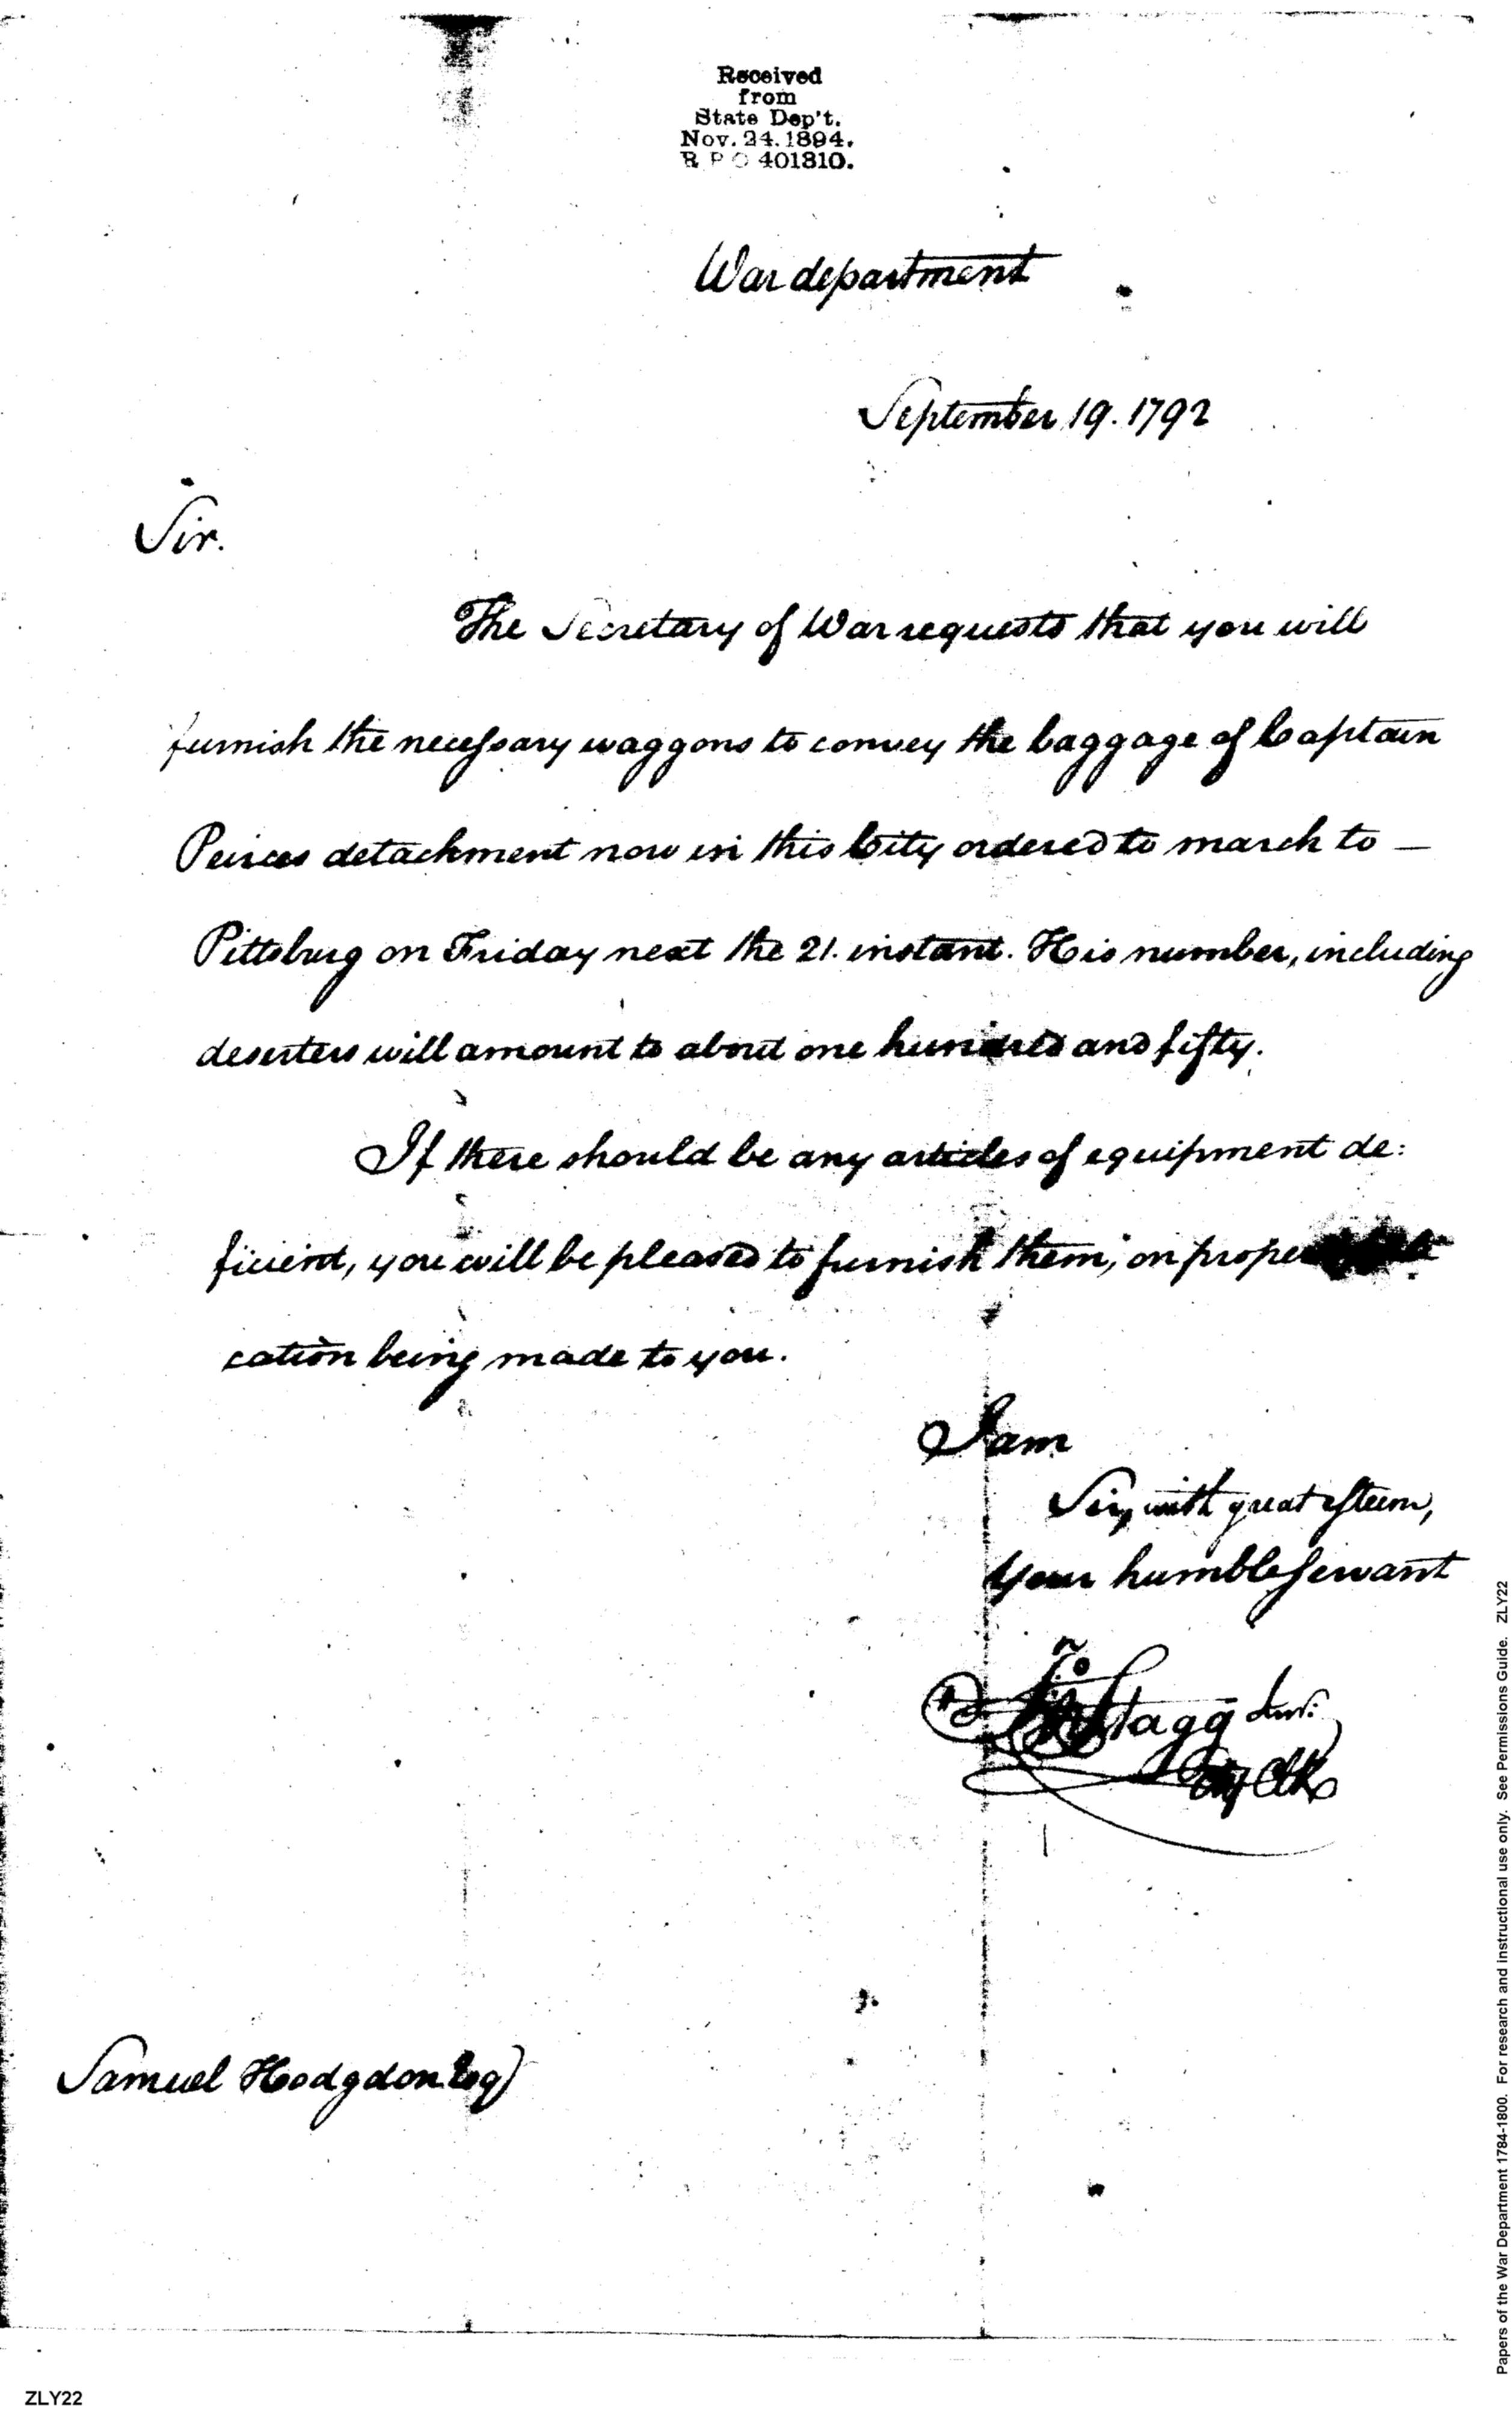 Received
from
State Dep't.
Nov. 24. 1894.
R P O 401310.
War department
September 19. 1792
Sir.
The Secretary of War requests that you will
furnish the necessary waggons to convey the baggage of Captain
Peirces detachment now in this City ordered to march to —
Pittsburg on Friday next the 21. instant. His number, including
deserters will amount to about one hundred and fifty.
If there should be any articles of equipment de:
ficient, you will be pleased to furnish them, on proper
cation being made to you.
I am
Sir, with great esteem,
Your humble servant
Jno Stagg Junr.
Clk
Samuel Hodgdon Esq
Papers of the War Department 1784-1800. For research and instructional use only. See Permissions Guide. ZLY22
ZLY22